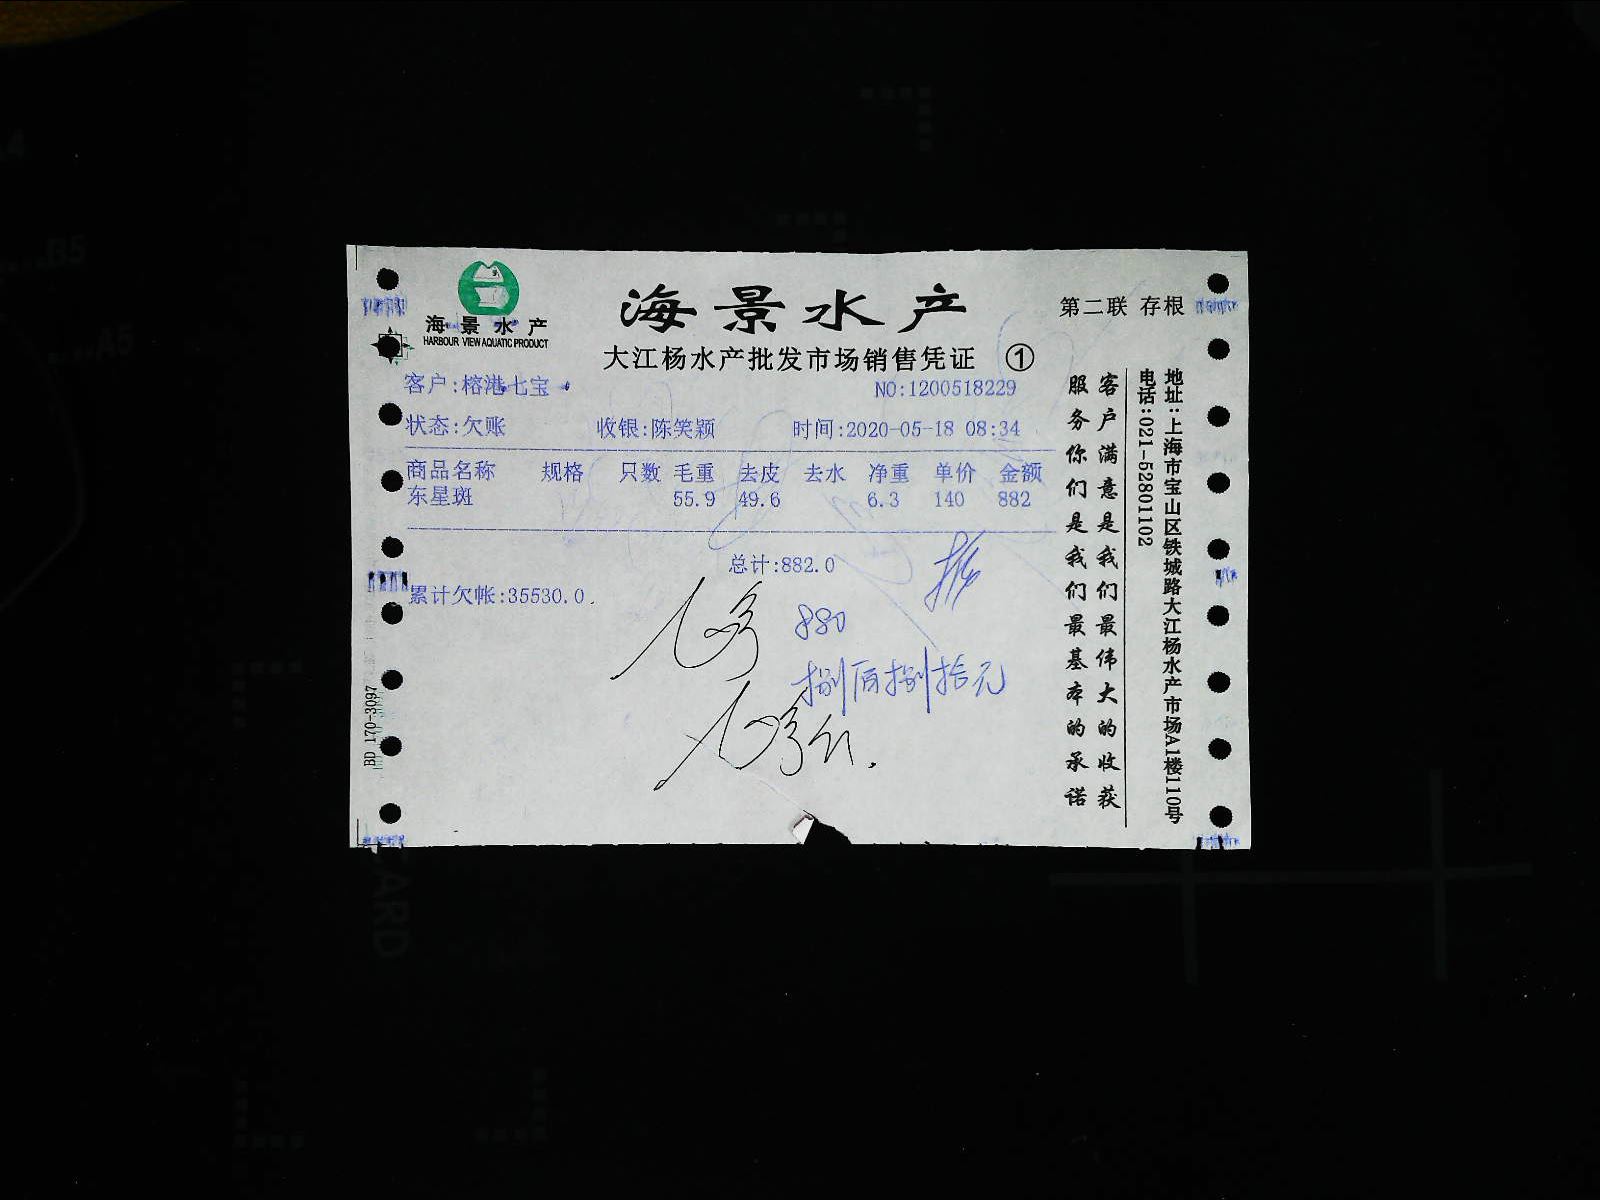 海景水产
HARBOUR VIEW AQUATIC PRODUCT
海景水产
第二联 存根
大江杨水产批发市场销售凭证 ①
客户:榕港七宝
NO:1200518229
状态:欠账 收银:陈笑颖 时间:2020-05-18 08:34
商品名称 规格 只数 毛重 去皮 去水 净重 单价 金额
东星斑 55.9 49.6 6.3 140 882
总计:882.0
累计欠帐:35530.0
880
捌佰捌拾元
客户满意是我们最伟大的收获
服务你们是我们最基本的承诺
地址:上海市宝山区铁城路大江杨水产市场A1楼110号
电话:021-52801102
BD 170-3097
CARD
A5
B5